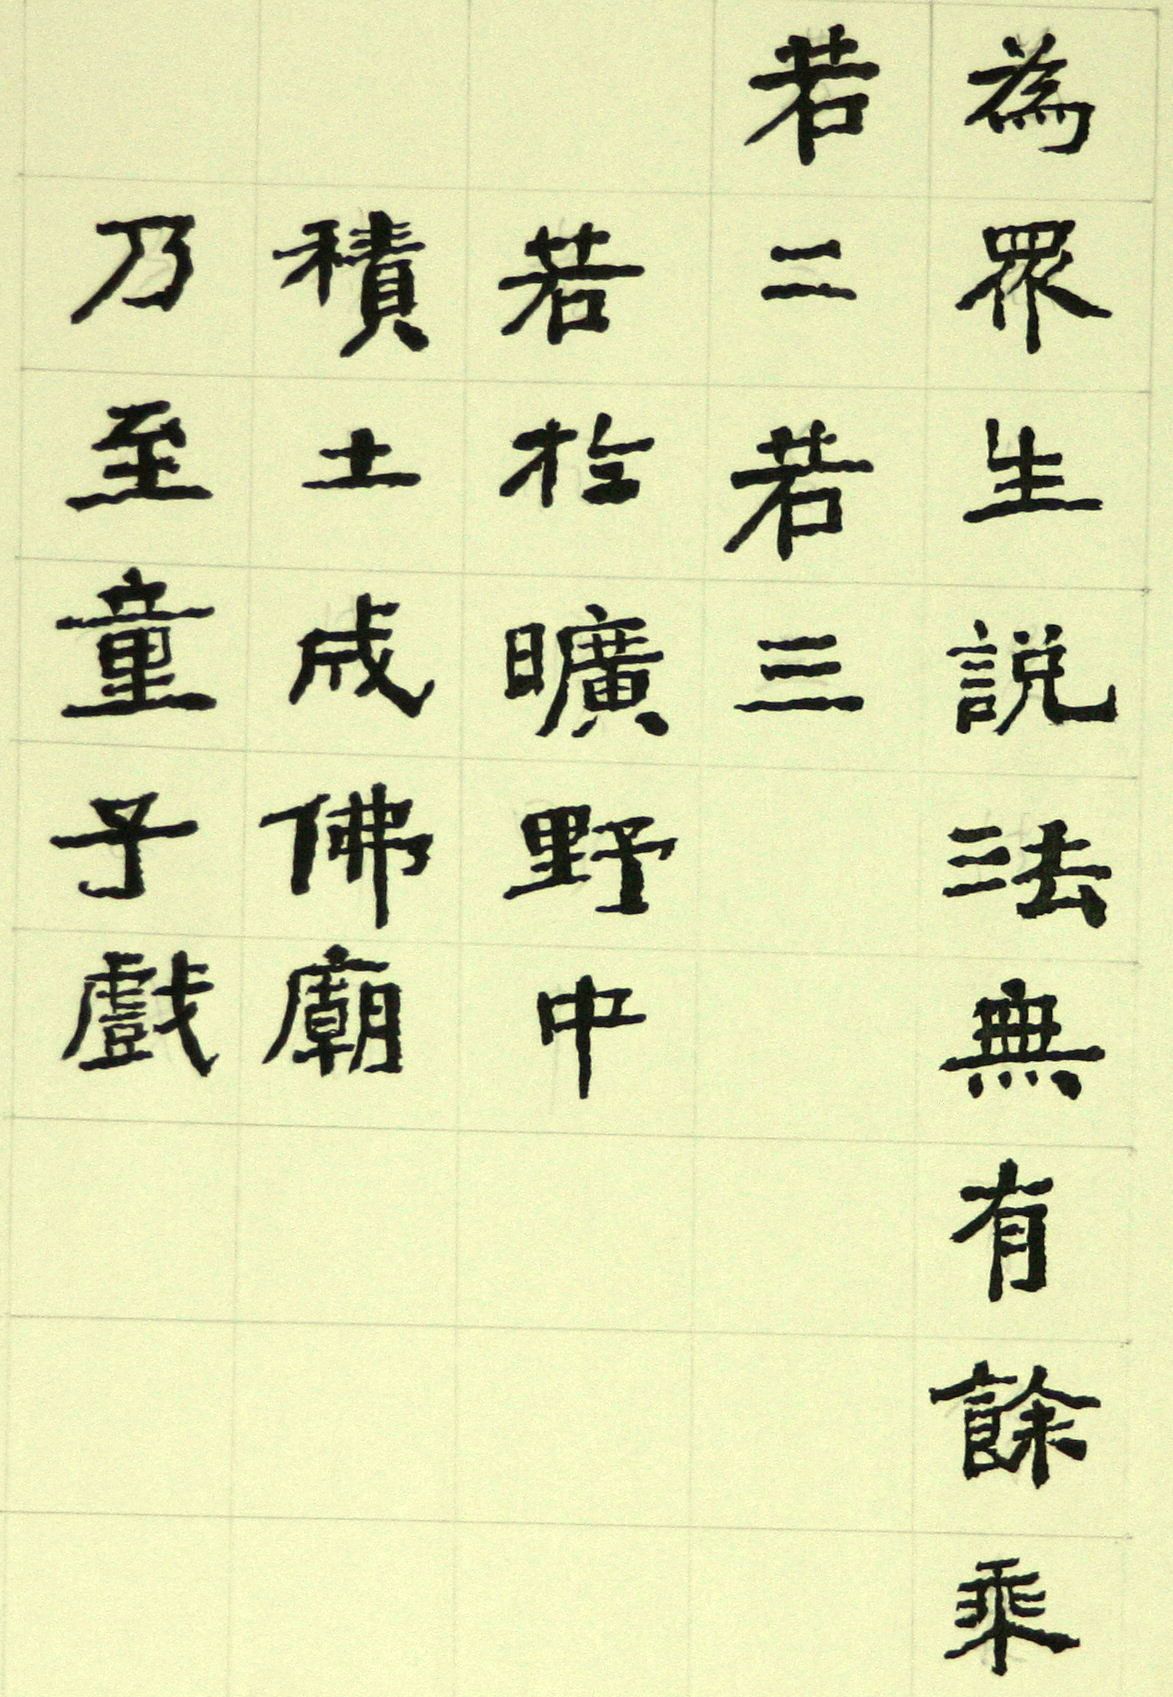 為眾生説法無有餘乘
若二若三
若於曠野中
積土成佛廟
乃至童子戲